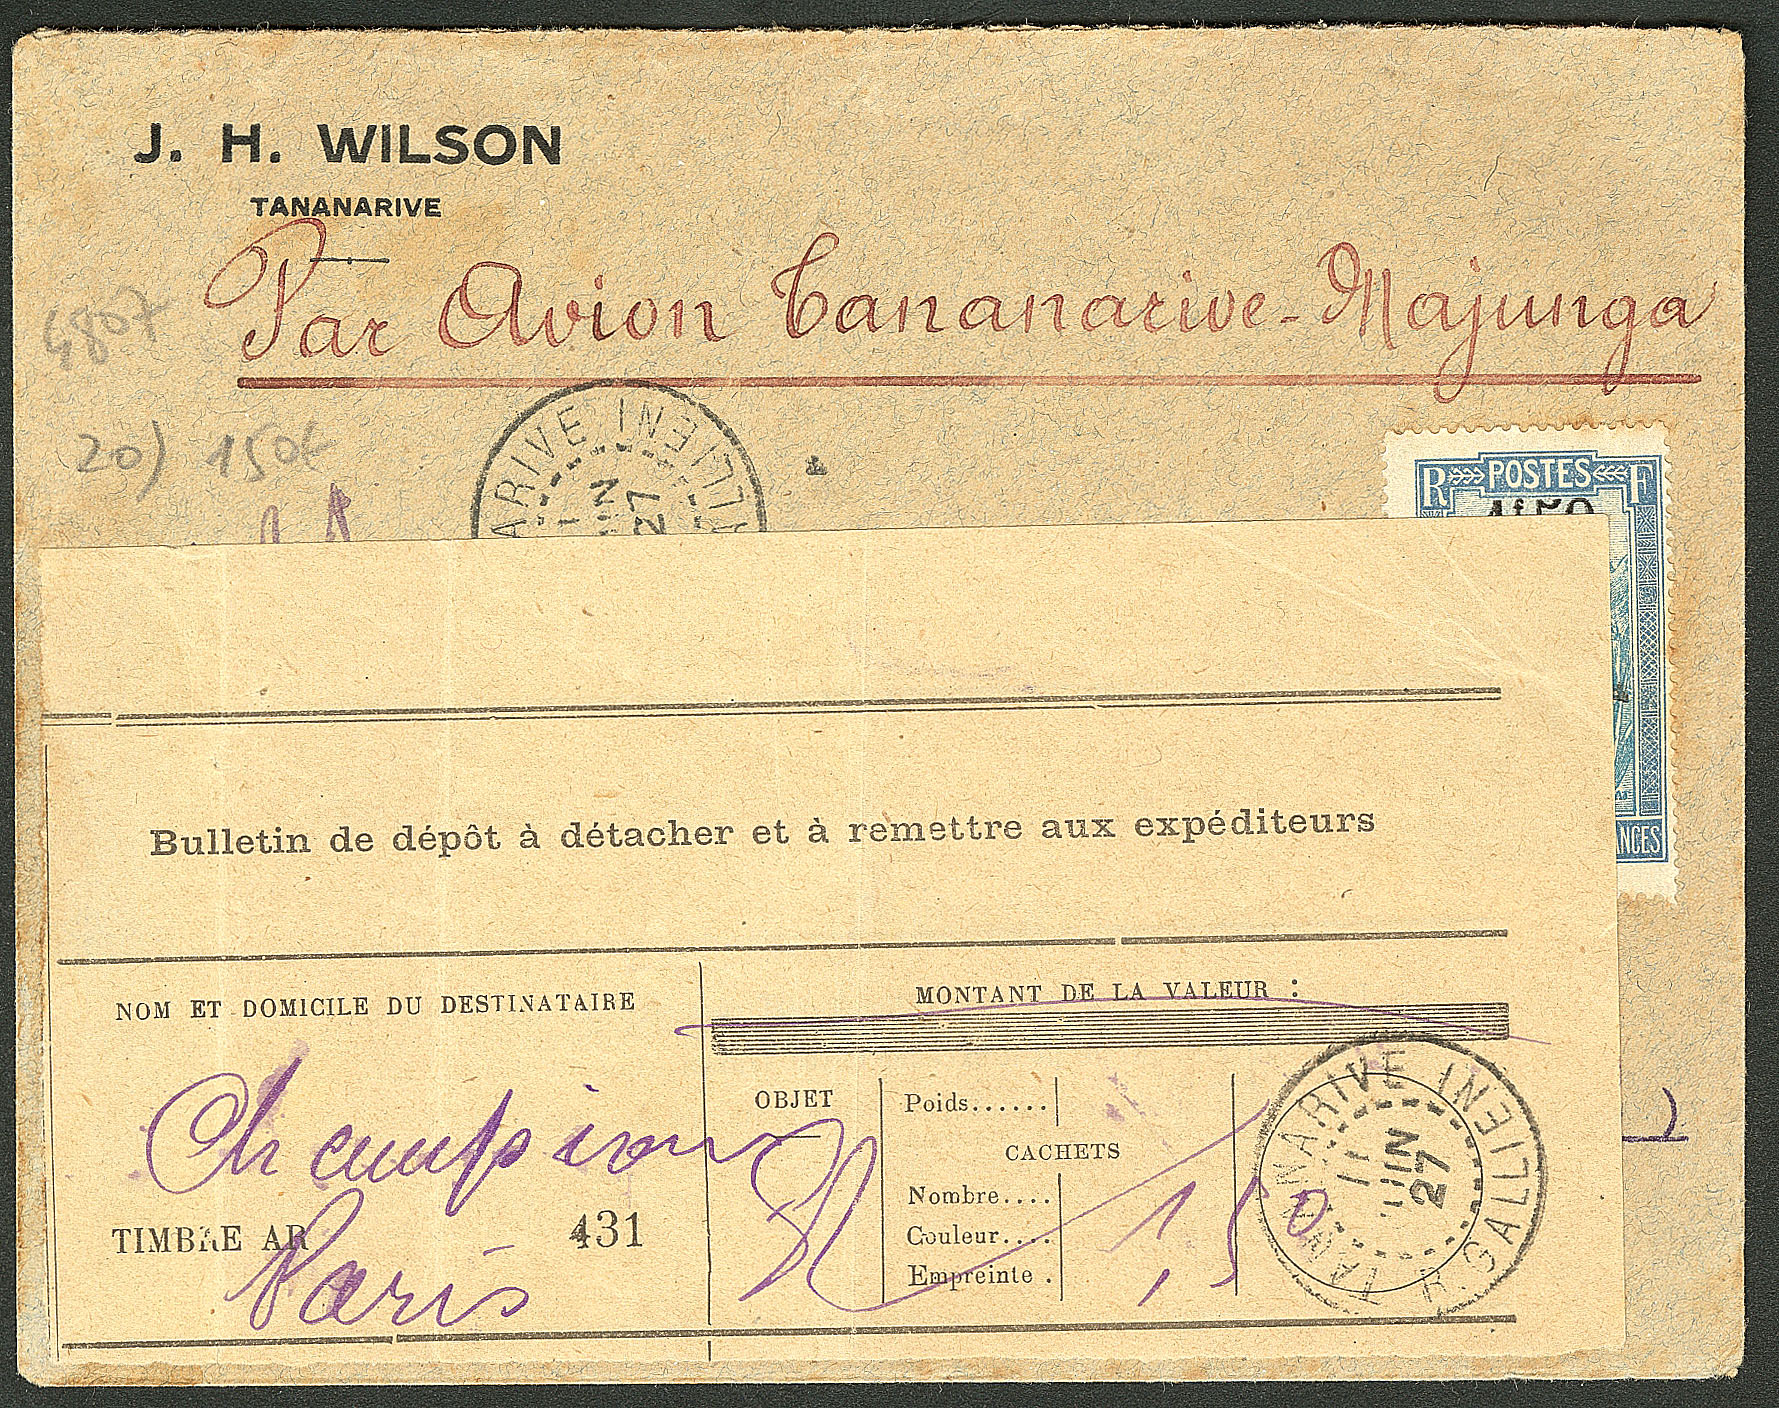 J. H. WILSON
TANANARIVE
Par Avion Tananarive-Majunga
4807
20) 150€
ARIVE R.GALLIENI
11
JUIN
27
R POSTES F
1f50
ANCES
Bulletin de dépôt à détacher et à remettre aux expéditeurs
NOM ET DOMICILE DU DESTINATAIRE
MONTANT DE LA VALEUR :
Champion
Paris
TIMBRE AR 431
OBJET
R
Poids......
CACHETS
Nombre....
Couleur....
Empreinte .
1,50
TANANARIVE R.GALLIENI
11
JUIN
27